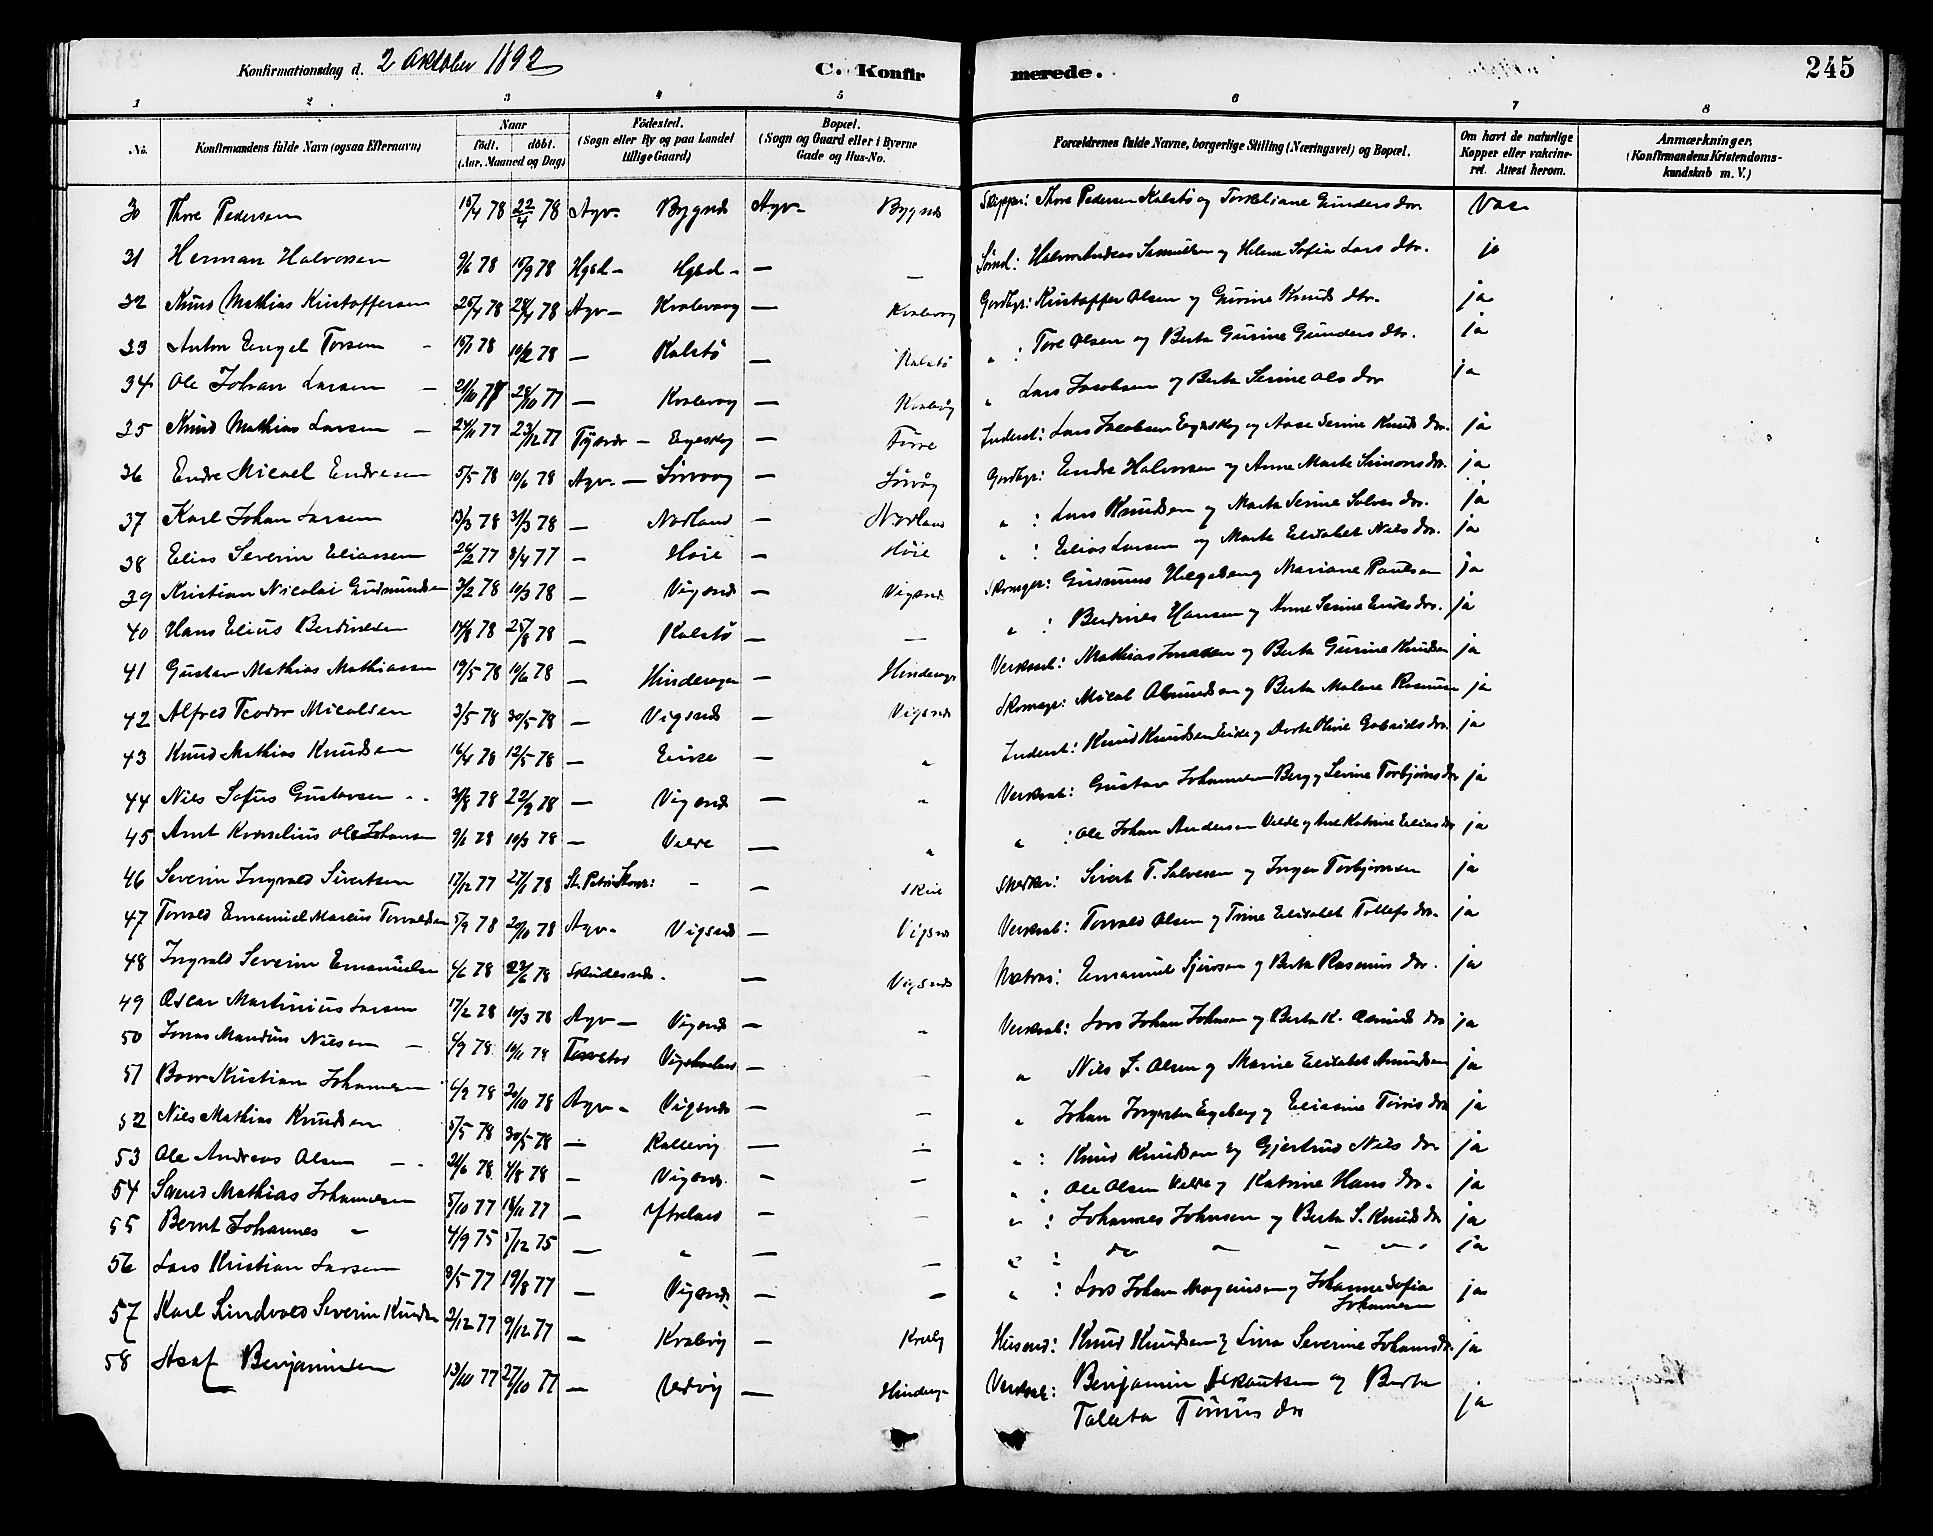 Konfirmationsdag d. 2 Oktober 1892 C. Konfirmerede. 245
1 2 3 4 5 6 7 8
No. Konfirmandens fulde Navn (ogsaa Efternavn) Naar födt. döbt. (Aar, Maaned og Dag) Födested. (Sogn eller By og paa Landet tillige Gaard) Bopæl. (Sogn og Gaard eller i Byerne Gade og Hus-No. Forældrenes fulde Navne, borgerlige Stilling (Næringsvei) og Bopæl. Om havt de naturlige Kopper eller vakcineret. Attest herom. Anmærkninger. (Konfirmandens Kristendomskundskab m. V.)
30 Thore Pedersen 15/4 78 22/4 78 Agv- Bygnes Agv- Bygnes Skipper: Thore Pedersen Kalstø og Torkeliane Gunders dtr Vac
31 Herman Halvorsen 9/6 78 15/9 78 Hgsd - Hgsd - — — Halvor Andreas Samuelsen og Helene Sofia Lars dtr. ja
32 Knud Mathias Kristoffersen 25/4 78 28/4 78 Agv — Kvalevaag — Kvalevag Gardbgr: Kristoffer Olsen og Gurine Knuds dtr. ja
33 Anton Engel Torsen 15/1 78 10/2 78 — Kalstø — Kalstø " : Tore Olsen og Berta Gurine Gunders dtr. ja
34 Ole Johan Larsen — 21/10 77 28/10 77 — Kvalevag — Kvalevåg " Lars Jacobsen og Berta Serine Ols dtr ja
35 Knud Mathias Larsen — 24/11 77 23/12 77 Tysvær — — Inderst: Lars Jacobsen og Aase Serine Knuds dtr. ja
36 Endre Micael Endresen 5/5 78 10/6 78 Agv. — Sørvaag — Sørvåg Gardbgr: Endre Halvorsen og Anne Marta Simons dtr. ja
37 Karl Johan Larsen 13/3 78 31/3 78 — Nordland — " : Lars Knudsen og Marta Serine Salves dtr. ja
38 Elias Severin Eliassen 24/2 77 8/4 77 — Høie — Høie " : Elias Larsen og Marta Elisabet Nils dtr. ja
39 Kristian Nicolai Gudmundsen 3/2 78 10/3 78 — Vigsnes — Vigsnes Skomager: Gudmund og Mariane Paulsen ja
40 Hans Elius Berdinesen 14/8 78 25/8 78 — Kalstø — — " : Berdines Hansen og Anne Serine dtr. ja
41 Gustav Mathias Mathiassen 19/5 78 10/6 78 — Hindervgn — Verksarb: Mathias og Berta Gurine Knudsen ja
42 Alfred Teodor Micalsen 3/5 78 30/5 78 — Vigsnes — Vigsnes Skomagr: Micael og Berta Malene Rasmusen ja
43 Knud Mathias Knudsen 16/4 78 12/5 78 — Eide — " Inderst: Knud Knudsen Eide og Dorte Oline Gabriels dtr. ja
44 Nils Sofus Gustavsen 31/8 78 22/9 78 — Vigsnes — " Verksarb: Gustav Johannesen Berg og Serine Torbjørns dtr ja
45 Arnt Kornelius Ole Johansen 9/1 78 10/3 78 — Velde — " " : Ole Johan Andersen Velde og Ane Katrine Elias dtr ja
46 Severin Ingvald Sivertsen 17/12 77 27/1 78 St. Petri Stvgr: - — Sivert T. Salvesen og Inger Torbjørnsen ja
47 Torvald Emanuel Marcus Torvaldsen 5/9 78 20/10 78 Agv- Vigsnes — Vigsnes Verksarb: Torvald Olsen og Trine Elisabet Tollefs dtr. ja
48 Ingvald Severin Emanuelsen 4/6 78 23/6 78 Skudesnes. — Vigsnes Matros: Emanuel og Berta Rasmus dtr. ja
49 Oscar Martinius Larsen 17/2 78 10/3 78 Agv — Vigsnes — " Verksarb: Lars Johan Johnsen og Berta K. dtr ja
50 Jonas Mandius Nilsen — 6/9 78 10/11 78 Torvestad — — " Nils J. Olsen og Marie Elisabet Amundsen ja
51 Kristian Johannesen 4/9 78 20/10 78 Agv - Vigsnes — — " Johan og Eliasine dtr ja
52 Nils Mathias Knudsen 5/5 78 30/5 78 — Kallevig — — " : Knud Knudsen og Gjertrud Nils dtr ja
53 Ole Andreas Olsen — 24/6 78 4/8 78 — Vigsnes. — — " : Ole Olsen Velde og Katrine Hans dtr. ja
54 Svend Mathias Johannesen 5/10 77 18/11 77 — Ytreland — — " : Johannes Johnsen og Berta S. Knuds dtr ja
55 Bernt Johannes " 4/9 75 5/12 75 — " — " : do " " " ja
56 Lars Kristian Larsen 8/5 77 19/8 77 — Vigsnes — — " : Lars Johan Magnusen og Johanne Sofia Johannesen ja
57 Karl Lindvald Severin Knudsen 2/12 77 9/12 77 — Kvalevig — Husmd: Knud Knudsen og Lina Severine Johans dtr. ja
58 Asaf Benjaminsen 13/10 77 27/10 77 — Vedvig — Verksarb: Benjamin og Berta Taletta dtr ja